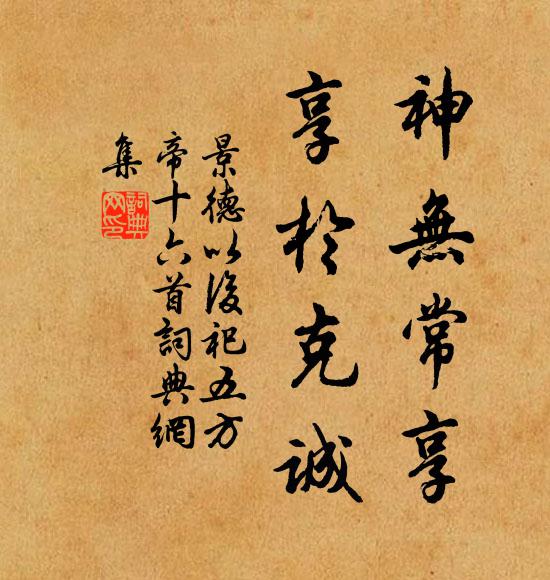 神無常享
享於克誠
景德以後祀五方
帝十六首詞典網
集
詞典網印